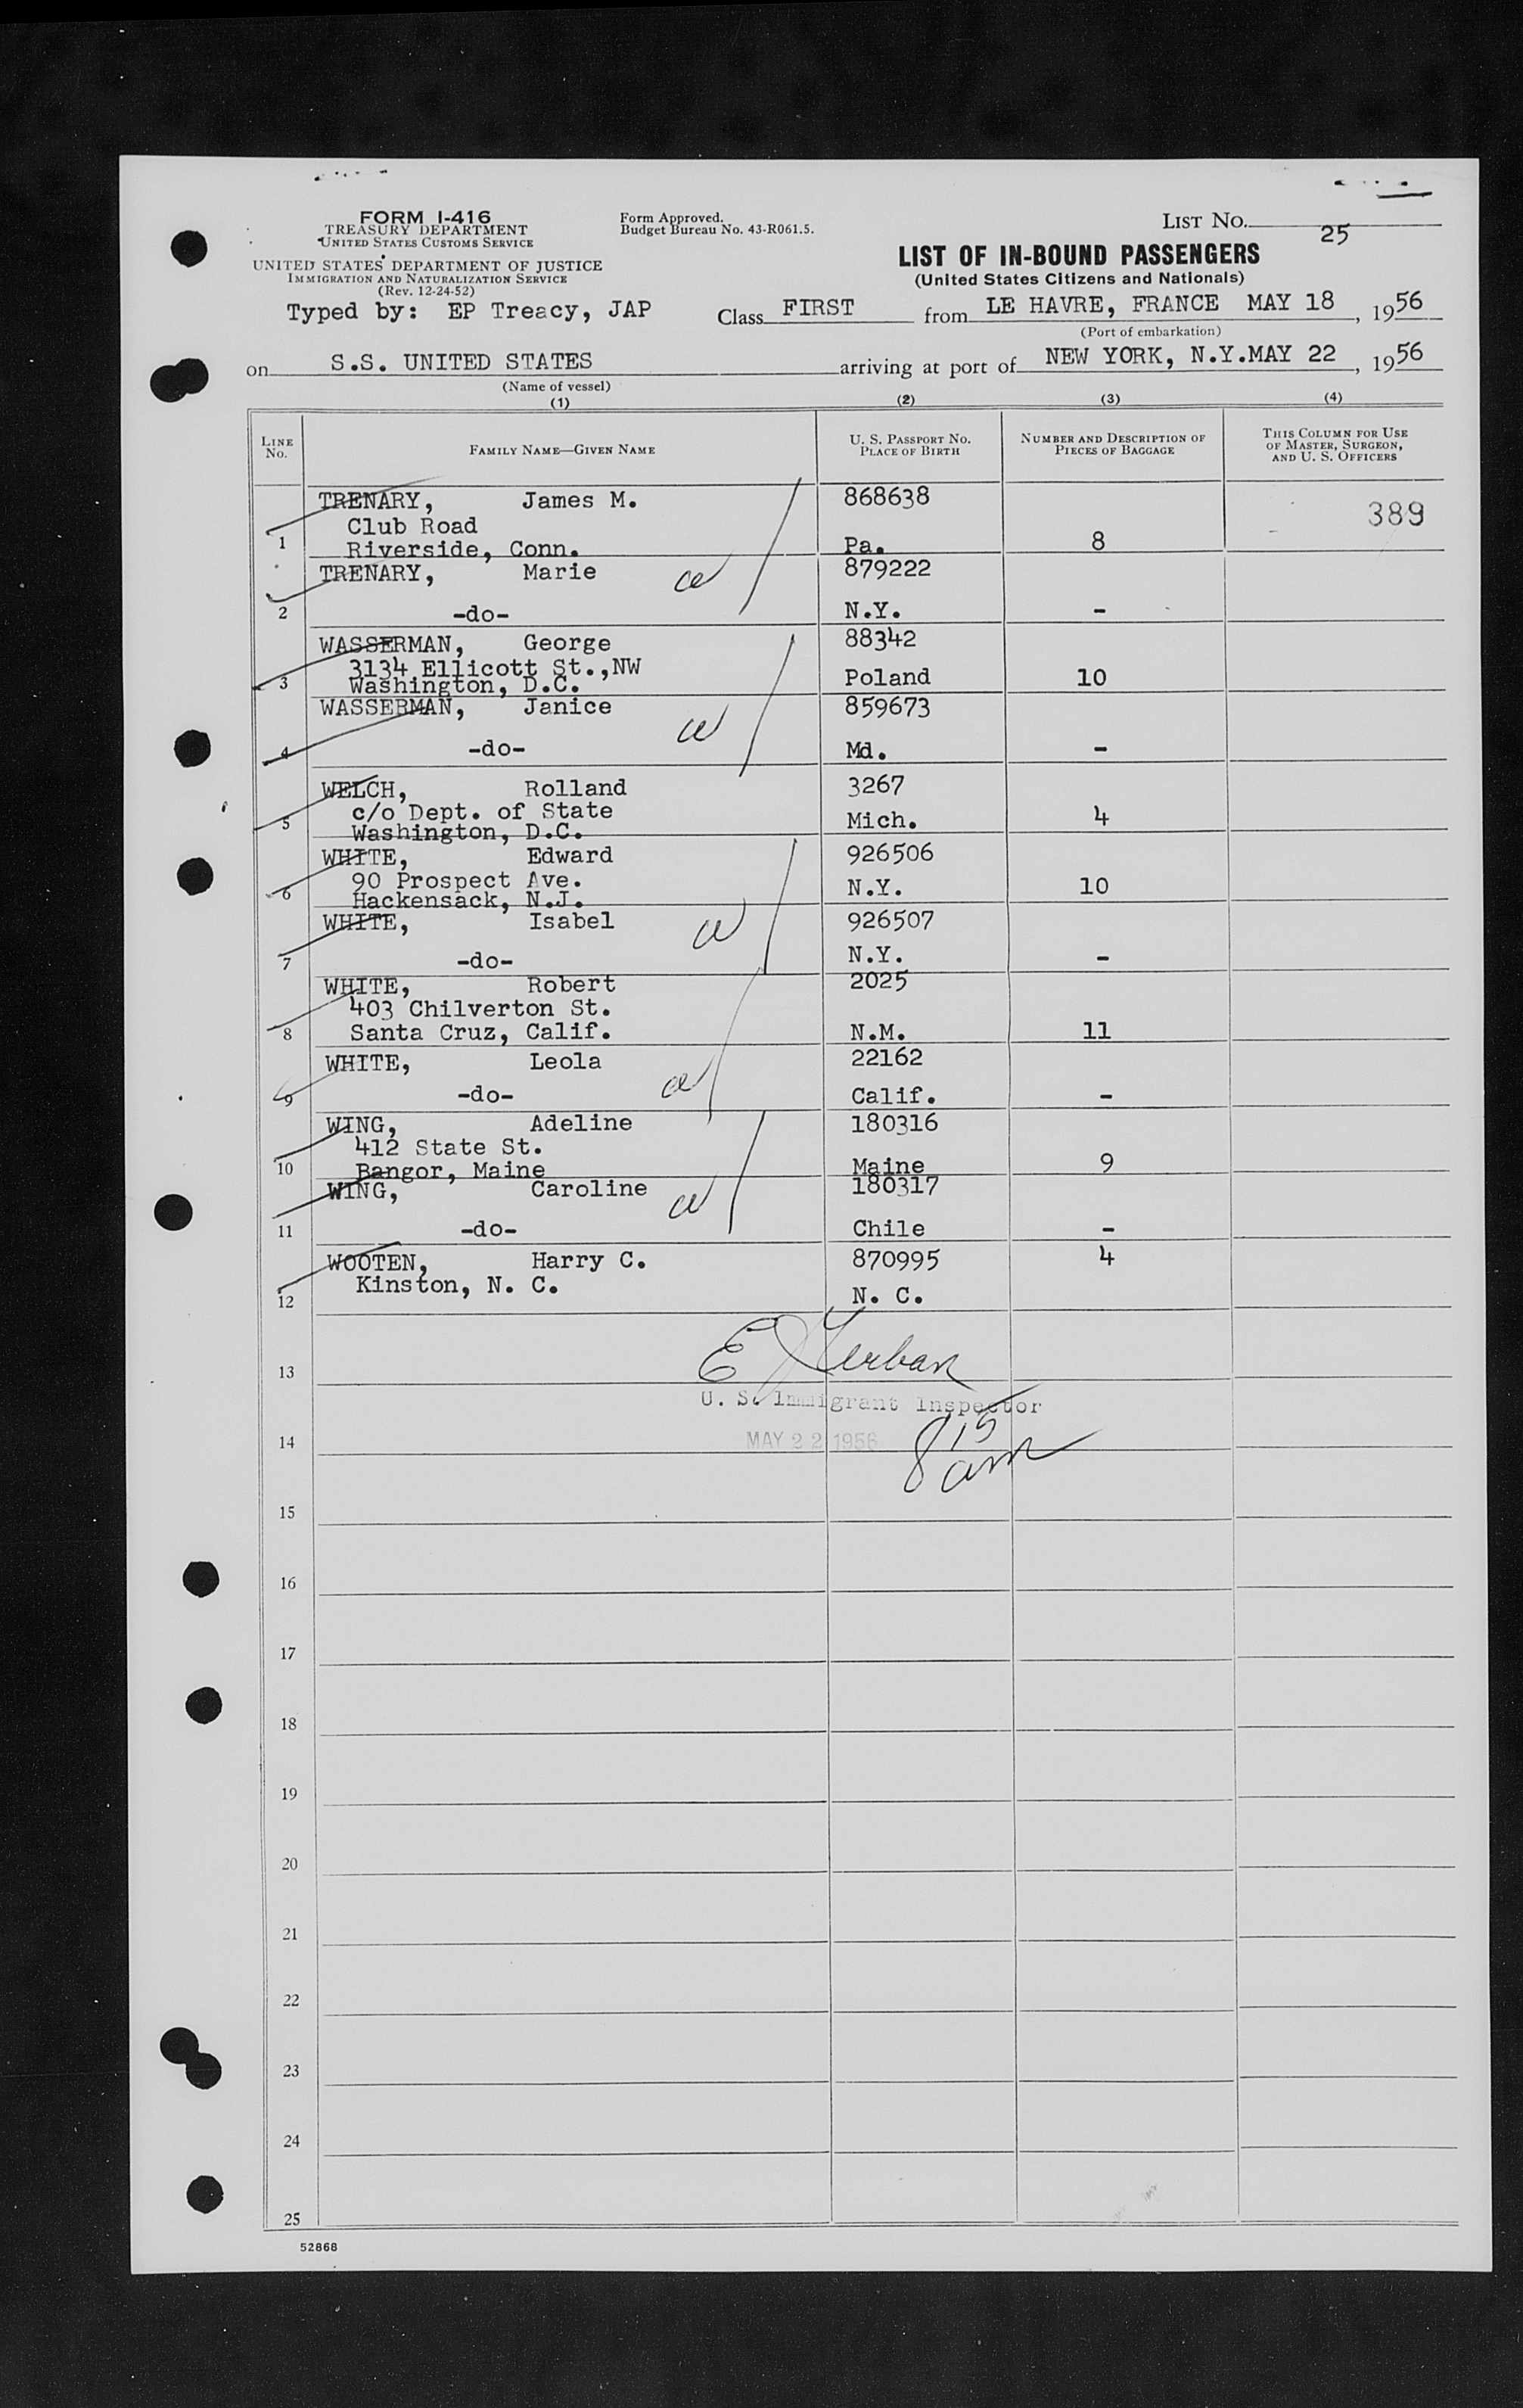 FORM I-416
TREASURY DEPARTMENT
UNITED STATES CUSTOMS SERVICE
UNITED STATES DEPARTMENT OF JUSTICE
IMMIGRATION AND NATURALIZATION SERVICE
(Rev. 12-24-52)
Form Approved.
Budget Bureau No. 43-R061.5.
LIST No. 25
LIST OF IN-BOUND PASSENGERS
(United States Citizens and Nationals)
Typed by: EP Treacy, JAP
Class FIRST from LE HAVRE, FRANCE MAY 18, 1956
(Port of embarkation)
on S.S. UNITED STATES arriving at port of NEW YORK, N.Y. MAY 22, 1956
(Name of vessel)
(1) (2) (3) (4)
LINE No. FAMILY NAME—GIVEN NAME U. S. PASSPORT No. PLACE OF BIRTH NUMBER AND DESCRIPTION OF PIECES OF BAGGAGE THIS COLUMN FOR USE OF MASTER, SURGEON, AND U. S. OFFICERS
TRENARY, James M. 868638 389
Club Road
1 Riverside, Conn. Pa. 8
TRENARY, Marie 879222
2 -do- N.Y. -
WASSERMAN, George 88342
3134 Ellicott St.,NW
3 Washington, D.C. Poland 10
WASSERMAN, Janice 859673
4 -do- Md. -
WELCH, Rolland 3267
c/o Dept. of State
5 Washington, D.C. Mich. 4
WHITE, Edward 926506
90 Prospect Ave.
6 Hackensack, N.J. N.Y. 10
WHITE, Isabel 926507
7 -do- N.Y. -
WHITE, Robert 2025
403 Chilverton St.
8 Santa Cruz, Calif. N.M. 11
WHITE, Leola 22162
9 -do- Calif. -
WING, Adeline 180316
412 State St.
10 Bangor, Maine Maine 9
WING, Caroline 180317
11 -do- Chile -
WOOTEN, Harry C. 870995 4
Kinston, N. C.
12 N. C.
13
U. S. Immigrant Inspector
14 MAY 22 1956 8 15 am
15
16
17
18
19
20
21
22
23
24
25
52868